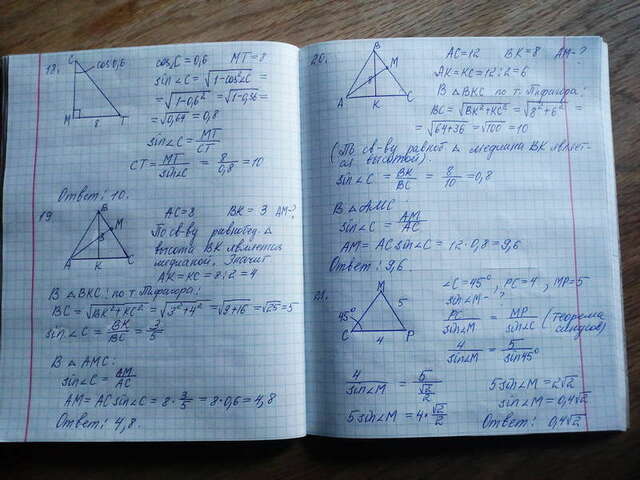 18.
C
cos 0,6
M
8
T
cos C = 0,6 MT = 8
sin∠C = √(1-cos²C) =
= √(1-0,6²) = √(1-0,36) =
= √0,64 = 0,8
sin∠C = MT/CT
CT = MT/sin∠C = 8/0,8 = 10
Ответ: 10.
19
B
M
3
A
K
C
AC = 8 BK = 3 AM-?
По св-ву равнобед. Δ
высота BK является
медианой, значит
AK = KC = 8:2 = 4
В Δ BKC: по т. Пифагора:
BC = √(BK²+KC²) = √(3²+4²) = √(9+16) = √25 = 5
sin∠C = BK/BC = 3/5
В Δ AMC:
sin∠C = AM/AC
AM = AC sin∠C = 8·3/5 = 8·0,6 = 4,8
Ответ: 4,8.
20.
B
M
8
A
K
C
AC = 12 BK = 8 AM-?
AK = KC = 12:2 = 6
В Δ BKC по т. Пифагора:
BC = √(BK²+KC²) = √(8²+6²) =
= √(64+36) = √100 = 10
(По св-ву равноб Δ медиана BK являет-
ся высотой).
sin∠C = BK/BC = 8/10 = 0,8
В Δ AMC
sin∠C = AM/AC
AM = AC sin∠C = 12·0,8 = 9,6
Ответ: 9,6.
21.
M
45°
5
C
4
P
∠C = 45°, PC = 4, MP = 5
sin∠M-?
PC/sin∠M = MP/sin∠C (Теорема
синусов)
4/sin∠M = 5/sin45°
4/sin∠M = 5/(√2/2)
5 sin∠M = 4·√2/2
5 sin∠M = 2√2
sin∠M = 0,4√2
Ответ: 0,4√2